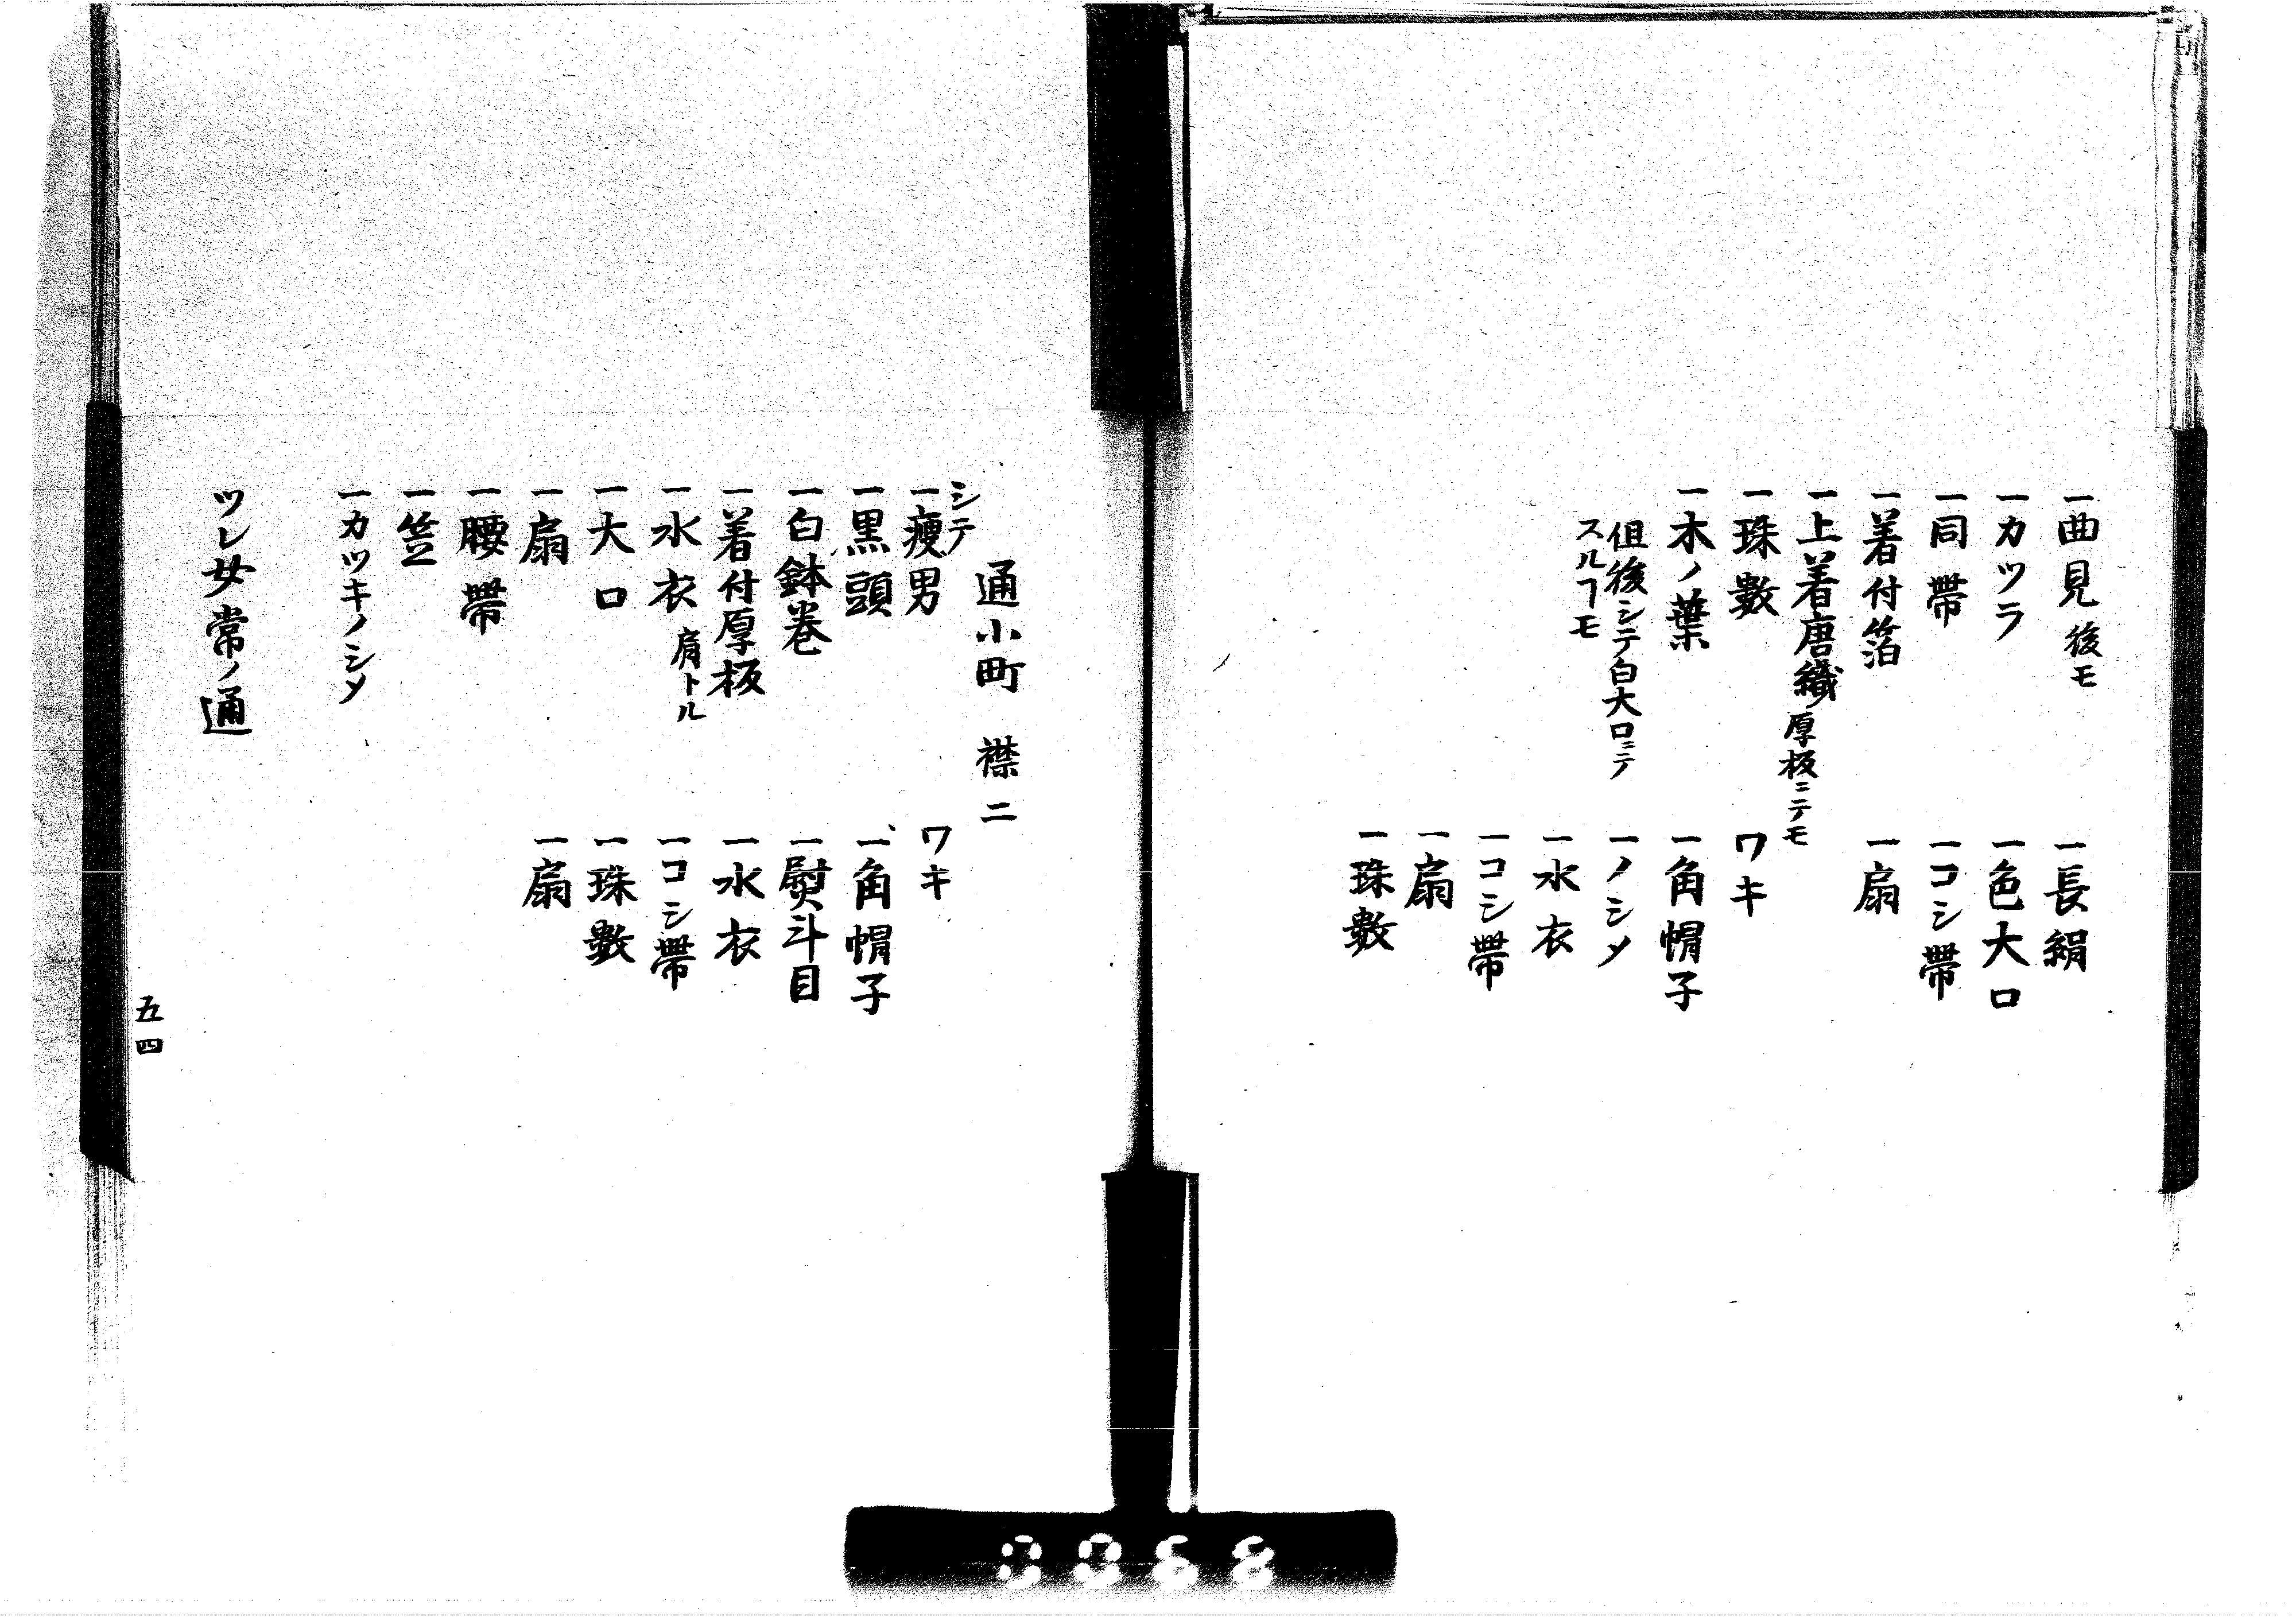 一曲見後モ
一カツラ
一同帯
一着付箔
一上着唐織厚板ニテモ
一珠數
一木ノ葉
但後シテ白大口ニテ
スルヿモ
一長絹
一色大口
一コシ帯
一扇
ワキ
一角帽子
一ノシメ
一水衣
一コシ帯
一扇
一珠數
通小町 襟二
シテ
一瘦男
一黒頭
一白鉢巻
一着付厚板
一水衣肩トル
一大口
一扇
一腰帯
一笠
一カツツキノシメ
ワキ
一角帽子
一熨斗目
一水衣
一コシ帯
一珠數
一扇
ツレ女常ノ通
五四